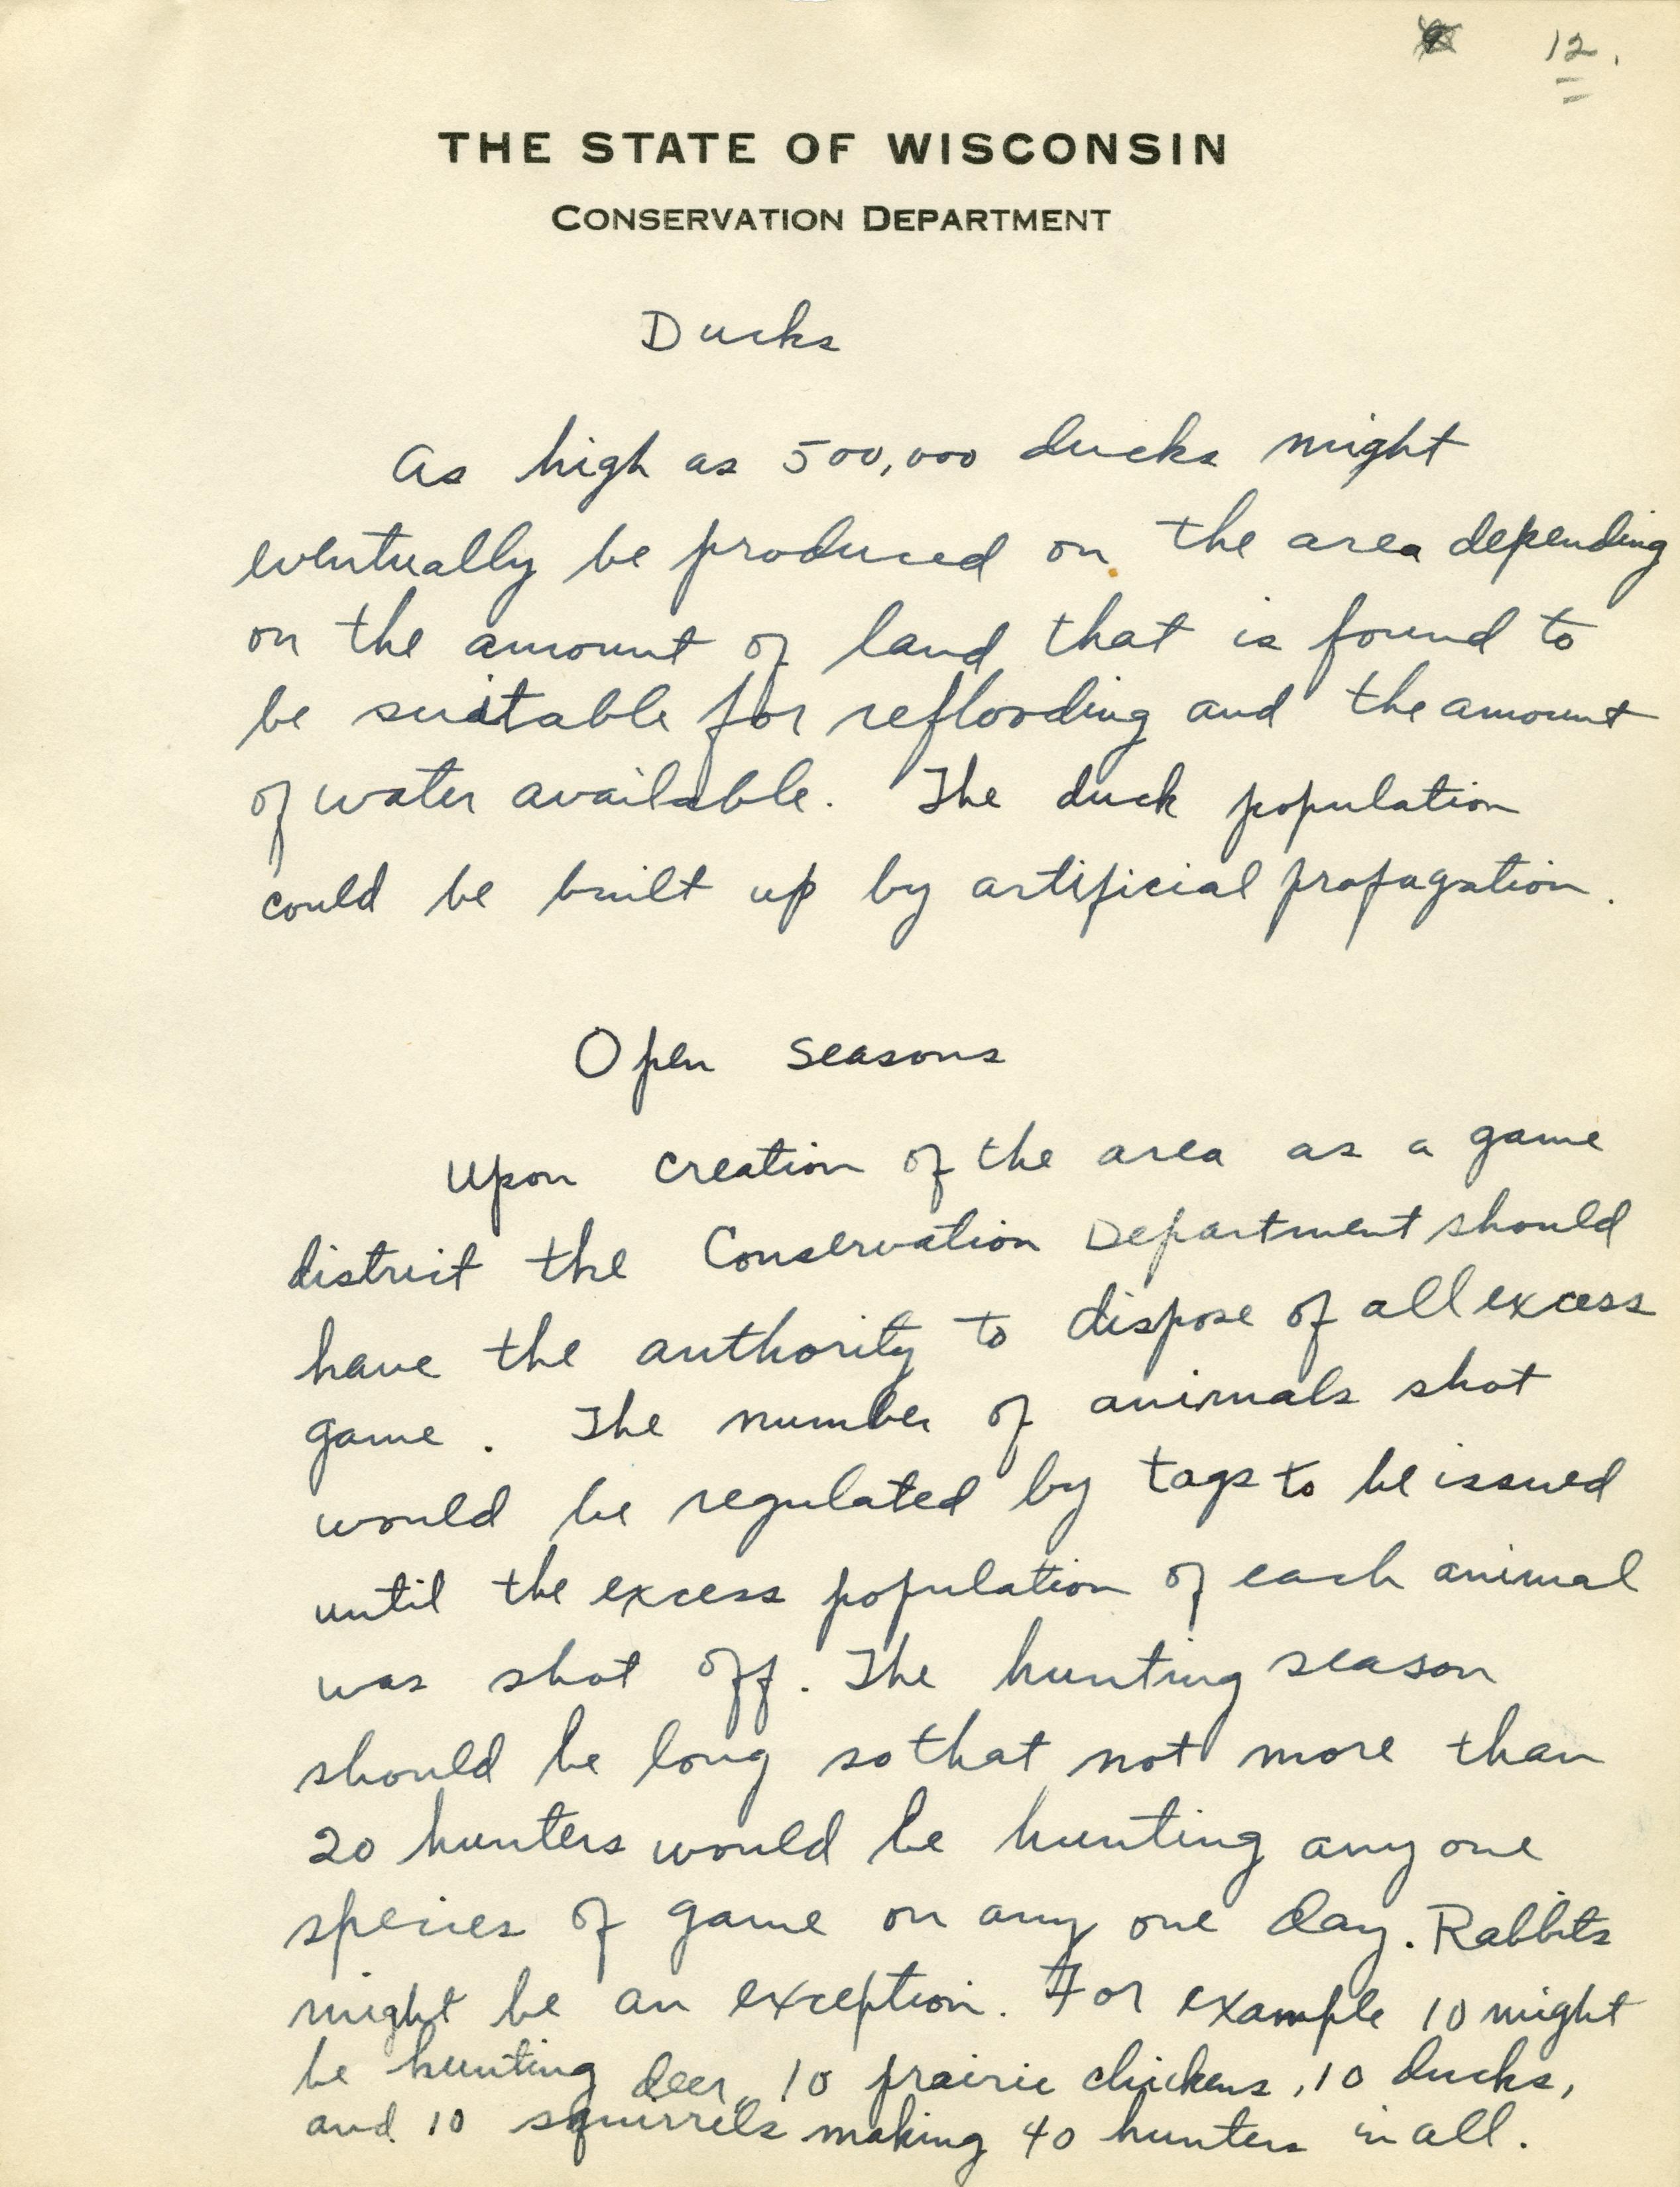 12.
THE STATE OF WISCONSIN
CONSERVATION DEPARTMENT
Ducks
As high as 500,000 ducks might
eventually be produced on the area depending
on the amount of land that is found to
be suitable for reflooding and the amount
of water available. The duck population
could be built up by artificial propagation.
Open Seasons
Upon creation of the area as a game
district the Conservation Department should
have the authority to dispose of all excess
game. The number of animals shot
would be regulated by tags to be issued
until the excess population of each animal
was shot off. The hunting season
should be long so that not more than
20 hunters would be hunting any one
species of game on any one day. Rabbits
might be an exception. For example 10 might
be hunting deer, 10 prairie chickens, 10 ducks,
and 10 squirrels making 40 hunters in all.